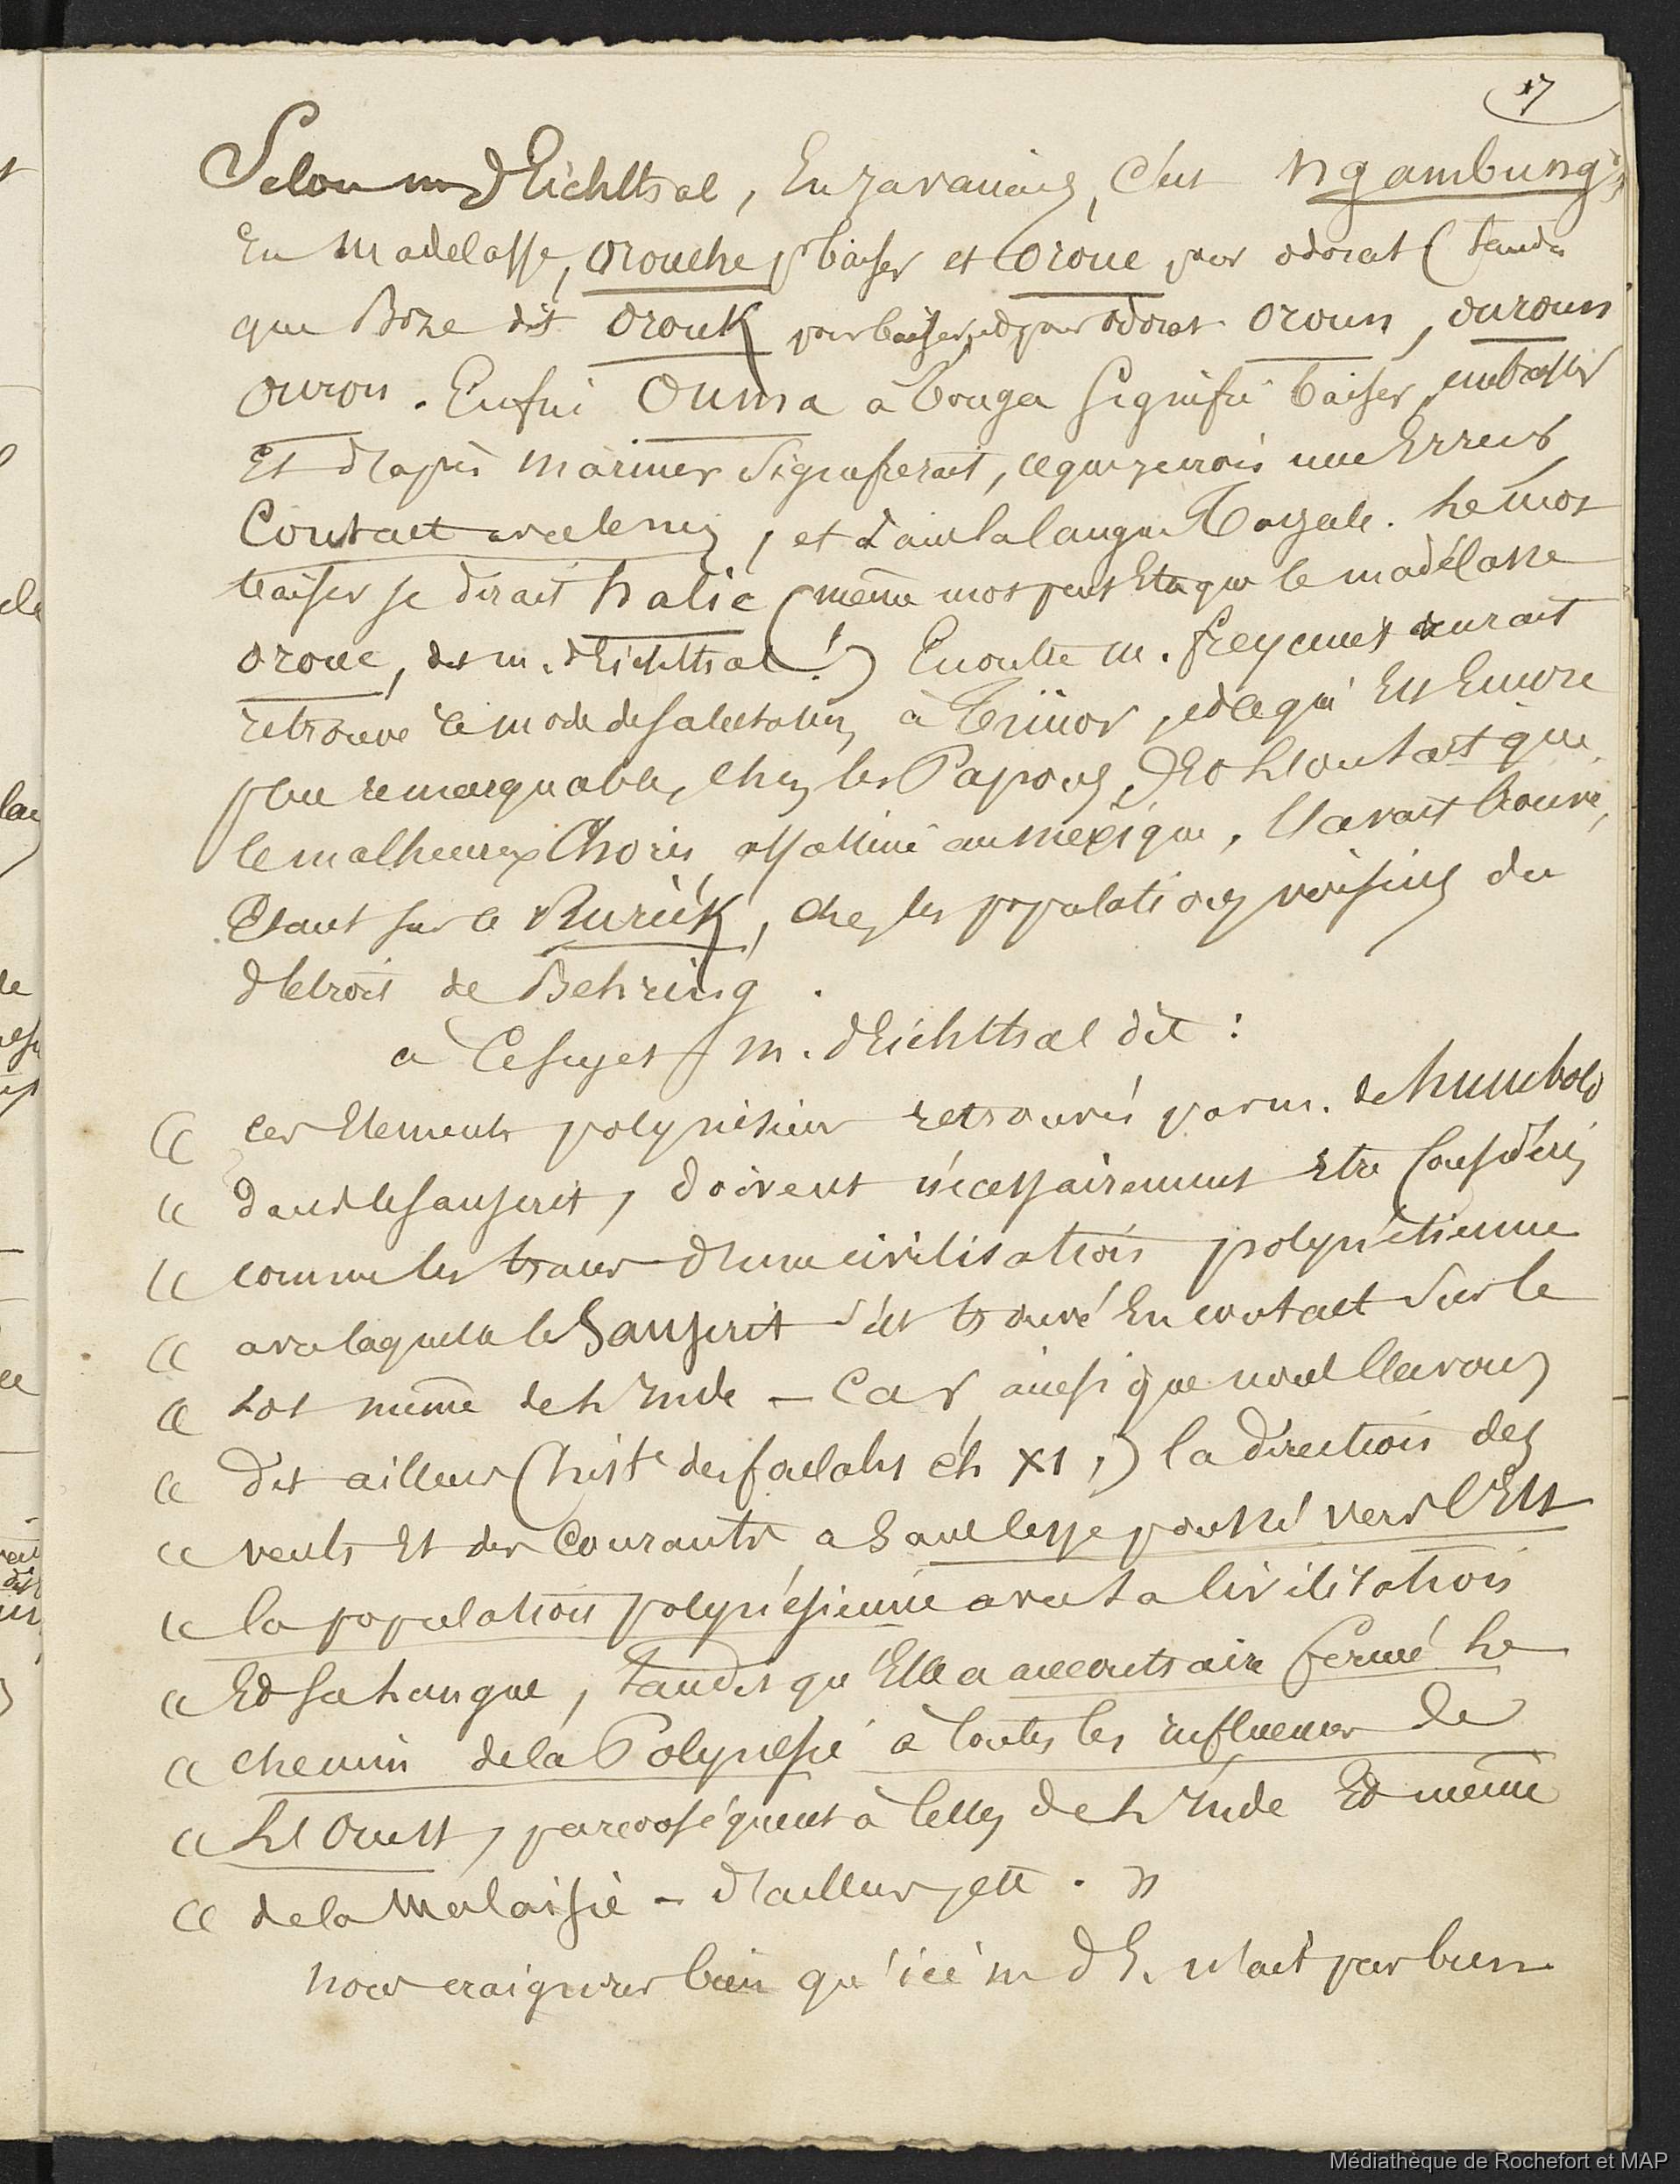 17
Selon m d'Eichtthal, En javanais, c'est ngambung;
En Madelasse, orouche pr baiser et oroue pour odorat (tandis
que Boze dit orouk pour baiser, et pour odorat oroun, ouroun
ouron. Enfin Ouma à Tonga signifie baiser, embrasser
Et d'après Mariner signifierait, ce que je crois une Erreur,
Contact avec le nez, et dans la langue Tagale. Le mot
baiser se dirait halic (même mot peut Etre que le madélasse
oroue, de m. d'Eichtthal!) En outre m. freycinet aurait
retrouvé ce mode de salutation, à Timor, et ce qui Est Encore
plus remarquable, chez les Papous, Et L'on sait que,
le malheureux Choris, assassiné au Mexique, L'avait trouvé,
Etant sur le Rurick, chez les populations voisines du
détroit de Behring.
a ce sujet m. d'Eichtthal dit :
« ces Elements polynésiens retrouvés par m. de humbold
« dans le Sanscrit, doivent nécessairement Etre Considérés
« comme les traces d'une civilisation polynésienne
« avec laquelle le Sanscrit s'est trouvé En contact sur le
« sol même de L'Inde – Car, ainsi que nous l'avons
« dit ailleurs (hist.e des foulahs ch XI,) la direction des
« vents Et des Courants a sans cesse poussé vers l'Est
« la population polynésienne avec sa civilisation
« Et sa Langue, tandis qu'Elle a au contraire fermé Le
« chemin de la Polynésie à toutes les influences de
« L'Ouest, par conséquent à celles de L'Inde Et même
« de la Malaisie – d'ailleurs, ett. »
nous craignons bien qu'ici m d'E. n'ait pas bien
Médiathèque de Rochefort et MAP